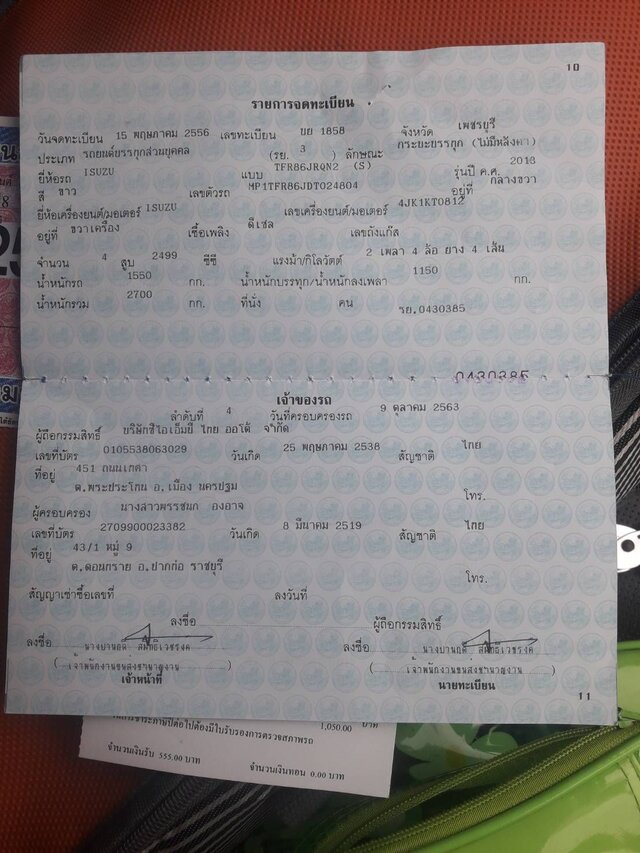 10
รายการจดทะเบียน
วันจดทะเบียน 15 พฤษภาคม 2556 เลขทะเบียน ขย 1858 จังหวัด เพชรบุรี
ประเภท รถยนต์บรรทุกส่วนบุคคล (รย. 3 ) ลักษณะ กระบะบรรทุก (ไม่มีหลังคา)
ยี่ห้อรถ ISUZU แบบ TFR86JRQN2 (S) รุ่นปี ค.ศ. 2013
สี ขาว เลขตัวรถ MP1TFR86JDT024804 อยู่ที่ กลางขวา
ยี่ห้อเครื่องยนต์/มอเตอร์ ISUZU เลขเครื่องยนต์/มอเตอร์ 4JK1KT0812
อยู่ที่ ขวาเครื่อง เชื้อเพลิง ดีเซล เลขถังแก๊ส
จำนวน 4 สูบ 2499 ซีซี แรงม้า/กิโลวัตต์ 2 เพลา 4 ล้อ ยาง 4 เส้น
น้ำหนักรถ 1550 กก. น้ำหนักบรรทุก/น้ำหนักลงเพลา 1150 กก.
น้ำหนักรวม 2700 กก. ที่นั่ง คน รย.0430385
0430385
เจ้าของรถ
ลำดับที่ 4 วันที่ครอบครองรถ 9 ตุลาคม 2563
ผู้ถือกรรมสิทธิ์ บริษัทซีไอเอ็มบี ไทย ออโต้ จำกัด
เลขที่บัตร 0105538063029 วันเกิด 25 พฤษภาคม 2538 สัญชาติ ไทย
ที่อยู่ 451 ถนนเทศา
ต.พระประโทน อ.เมือง นครปฐม โทร.
ผู้ครอบครอง นางสาวพรรชนก องอาจ
เลขที่บัตร 2709900023382 วันเกิด 8 มีนาคม 2519 สัญชาติ ไทย
ที่อยู่ 43/1 หมู่ 9
ต.ดอนทราย อ.ปากท่อ ราชบุรี โทร.
สัญญาเช่าซื้อเลขที่ ลงวันที่
ลงชื่อ ผู้ถือกรรมสิทธิ์
ลงชื่อ ลงชื่อ
(เจ้าพนักงานขนส่งชำนาญงาน) (เจ้าพนักงานขนส่งชำนาญงาน)
เจ้าหน้าที่ นายทะเบียน
11
1,050.00 บาท
ชำระภาษีปีต่อไปต้องมีใบรับรองการตรวจสภาพรถ
จำนวนเงินรับ 555.00 บาท จำนวนเงินทอน 0.00 บาท